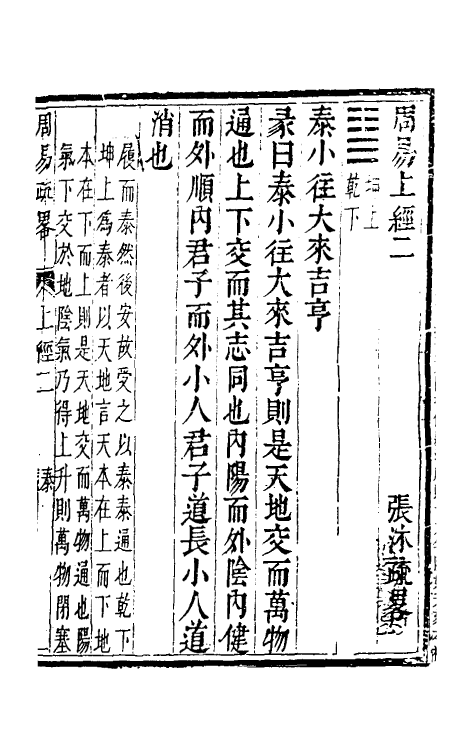 周易上經二
張沐疏畧
坤上
乾下
泰小往大來吉亨
彖曰泰小往大來吉亨則是天地交而萬物
通也上下交而其志同也內陽而外陰內健
而外順內君子而外小人君子道長小人道
消也
履而泰然後安故受之以泰泰通也乾下
坤上爲泰者以天地言天本在上而下地
本在下而上則是天地交而萬物通也陽
氣下交於地陰氣乃得上升則萬物閉塞
周易疏畧 上經二 泰 一